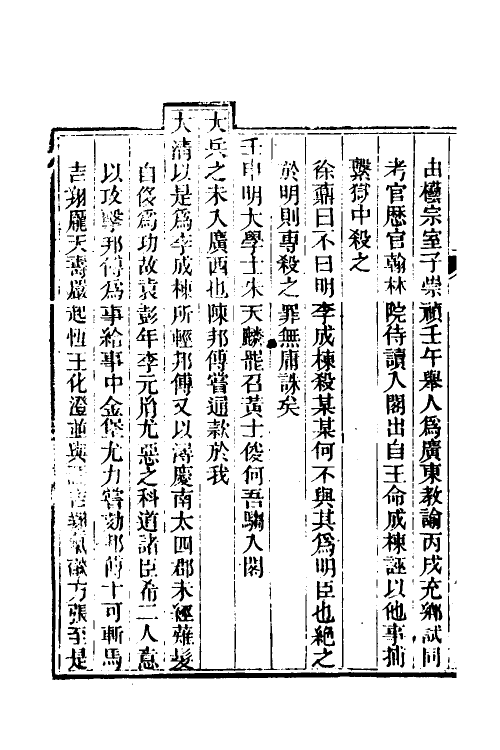 由櫳宗室子崇禎壬午舉人爲廣東教諭丙戌充鄉試同
考官歷官翰林院侍讀入閣出自王命成棟誣以他事捕
繫獄中殺之
徐鼒曰不曰明李成棟殺某某何不與其爲明臣也絶之
於明則專殺之罪無庸誅矣
壬申明大學士朱天麟罷召黃士俊何吾騶入閣
大兵之未入廣西也陳邦傅嘗通款於我
大清以是爲李成棟所輕邦傅又以潯慶南太四郡未經薙髮
自伐爲功故袁彭年李元胤尤惡之科道諸臣希二人意
以攻擊邦傅爲事給事中金堡尤力嘗劾邦傅十可斬馬
吉翔龐天壽嚴起恆王化澄並與焉吉翔氣燄方張至是